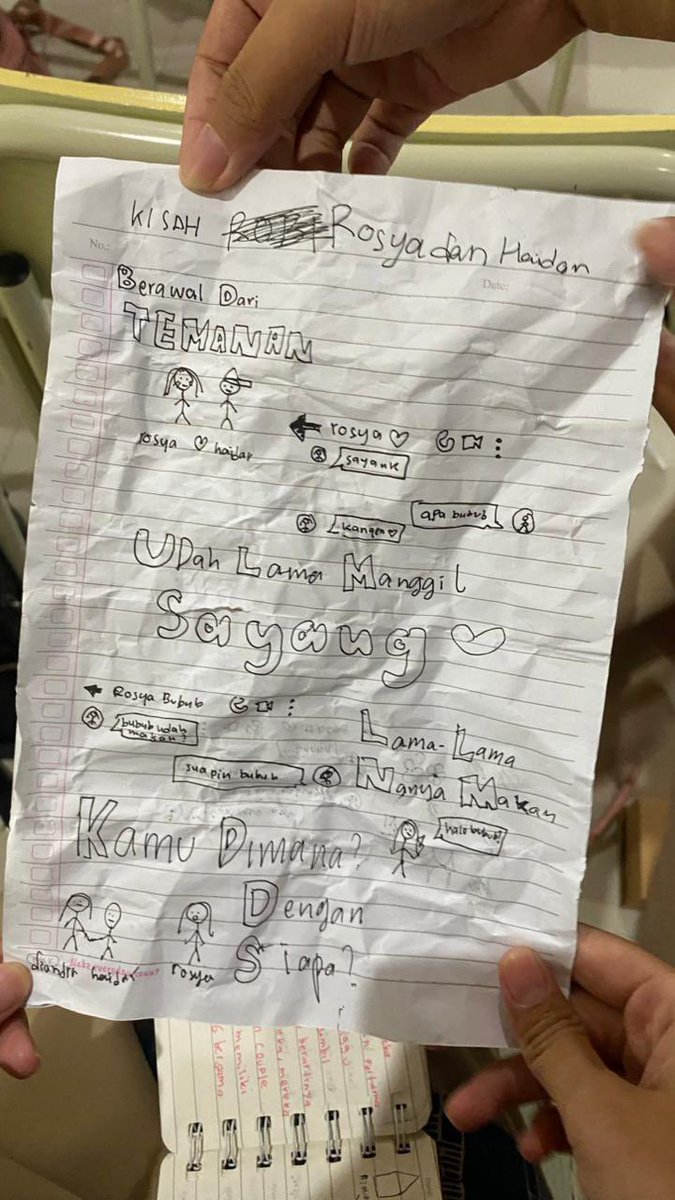 KISAH Rosya dan Haidar
No.:
Date:
Berawal Dari
TEMANAN
rosya ♡ haidar
rosya ♡
sayank
apa bubub
kangen ♡
Udah Lama Manggil
Sayang ♡
Rosya Bubub
bubub udah
makan?
suapin bubub
Lama-Lama
Nanya Makan
Kamu Dimana?
halo bubub?
Dengan
Siapa?
diandra haidar rosya